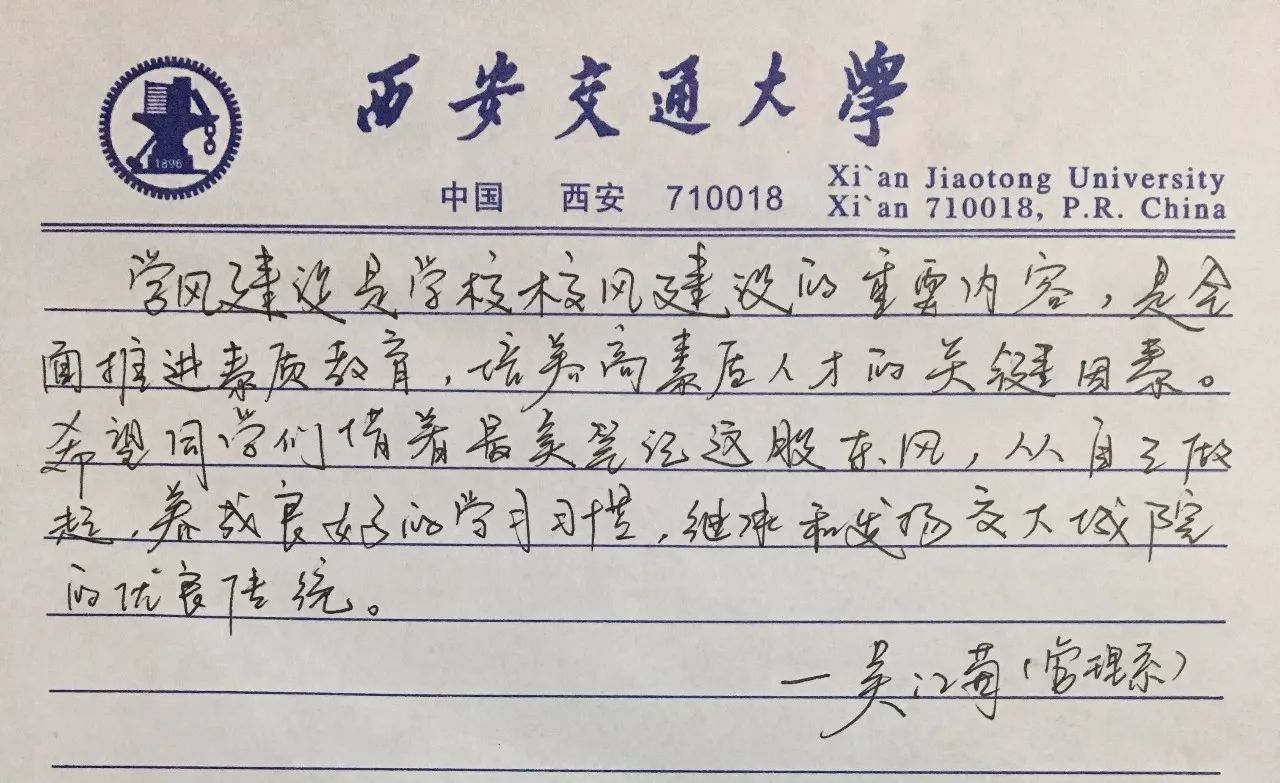 1896
西安交通大學
中国 西安 710018
Xi`an Jiaotong University
Xi`an 710018, P.R. China
学风建设是学校校风建设的重要内容，是全
面推进素质教育，培养高素质人才的关键因素。
希望同学们借着最美笔记这股东风，从自己做
起，养成良好的学习习惯，继承和发扬交大城院
的优良传统。
—吴江（管理系）